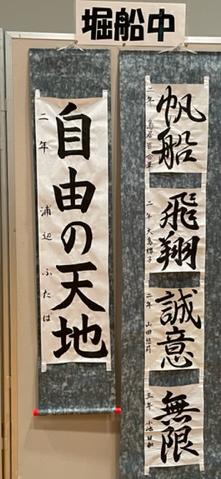 堀船中
帆船
二年
飛翔
二年 大島
誠意
二年 山田
無限
三年 小池
自由の天地
二年 浦辺ふたば